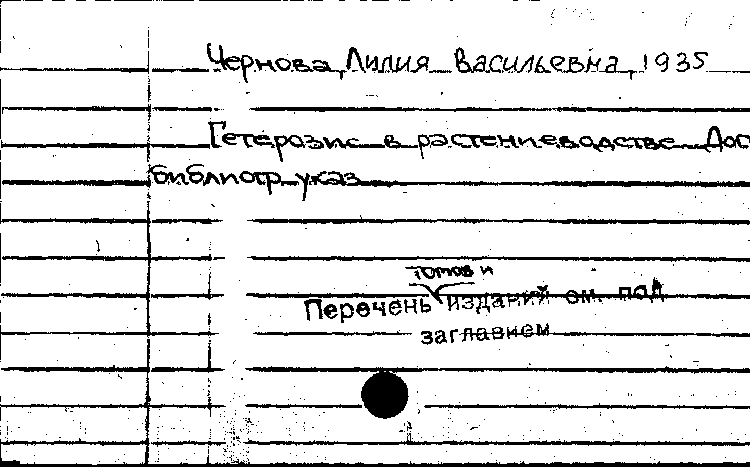 Чернова, Лилия Васильевна, 1935
Гетерозис в растениеводстве Дос
библиогр. указ
томов и
Перечень изданий см. под
заглавием